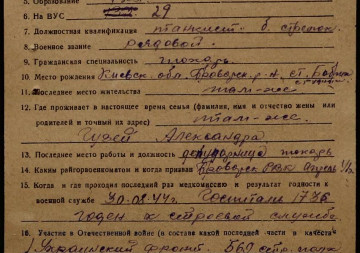 5. Образование
6. На ВУС 29
7. Должностная квалификация б. стрелок
8. Военное звание рядовой
9. Гражданская специальность токарь
10. Место рождения Киевск. обл. Броварск. р-н, ст.
11. Последнее место жительства там-же
12. Где проживает в настоящее время семья (фамилия, имя и отчество жены или
родителей и точный их адрес) там-же.
Александра
13. Последнее место работы и должность токарь
14. Каким райгорвоенкоматом и когда призван Броварск РВК
15. Когда и где проходил последний раз медкомиссию и результат годности к
военной службе 30.08.44г. Госпиталь
годен к строевой службе
16. Участие в Отечественной войне (в составе какой последней части и в качестве
1 Украинский фронт. 560 стр. полк